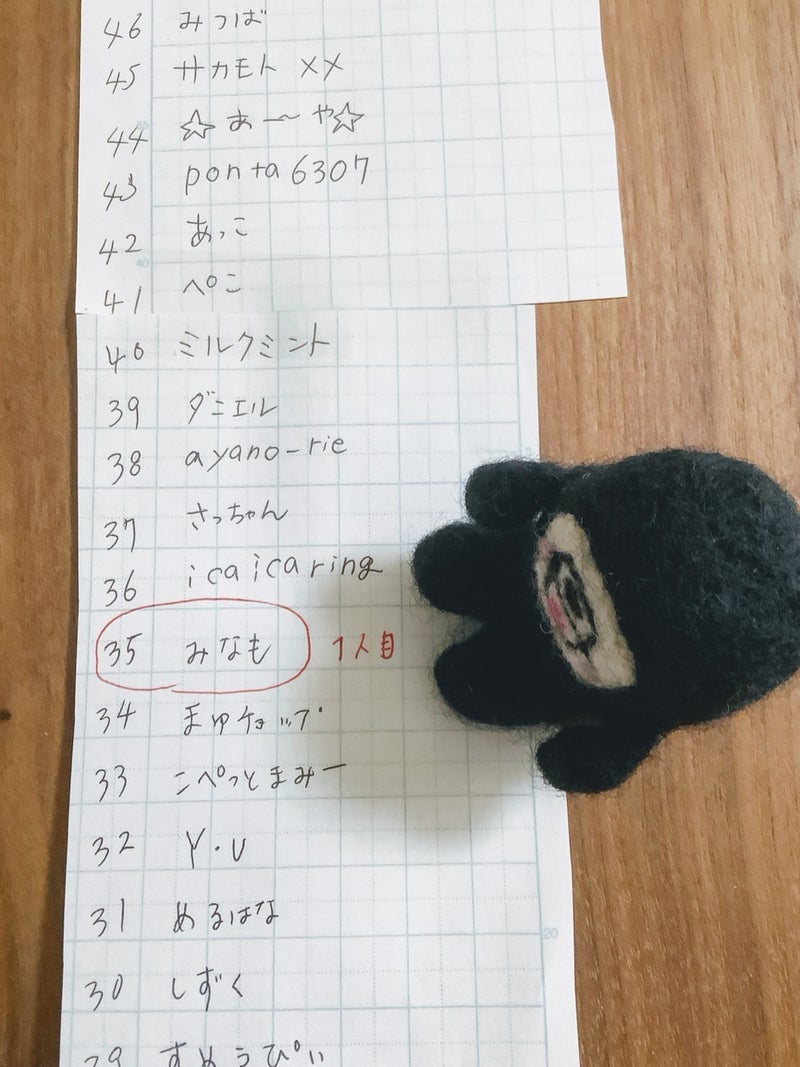 46 みつば
45 サカモト××
44 ☆あ〜や☆
43 ponta6307
42 あっこ
41 ぺこ
40 ミルクミント
39 ダニエル
38 ayano-rie
37 さっちゃん
36 icaicaring
35 みなも 1人目
34 まゆチョップ
33 こぺっとまみー
32 Y・U
31 めるはな
30 しずく
29
20